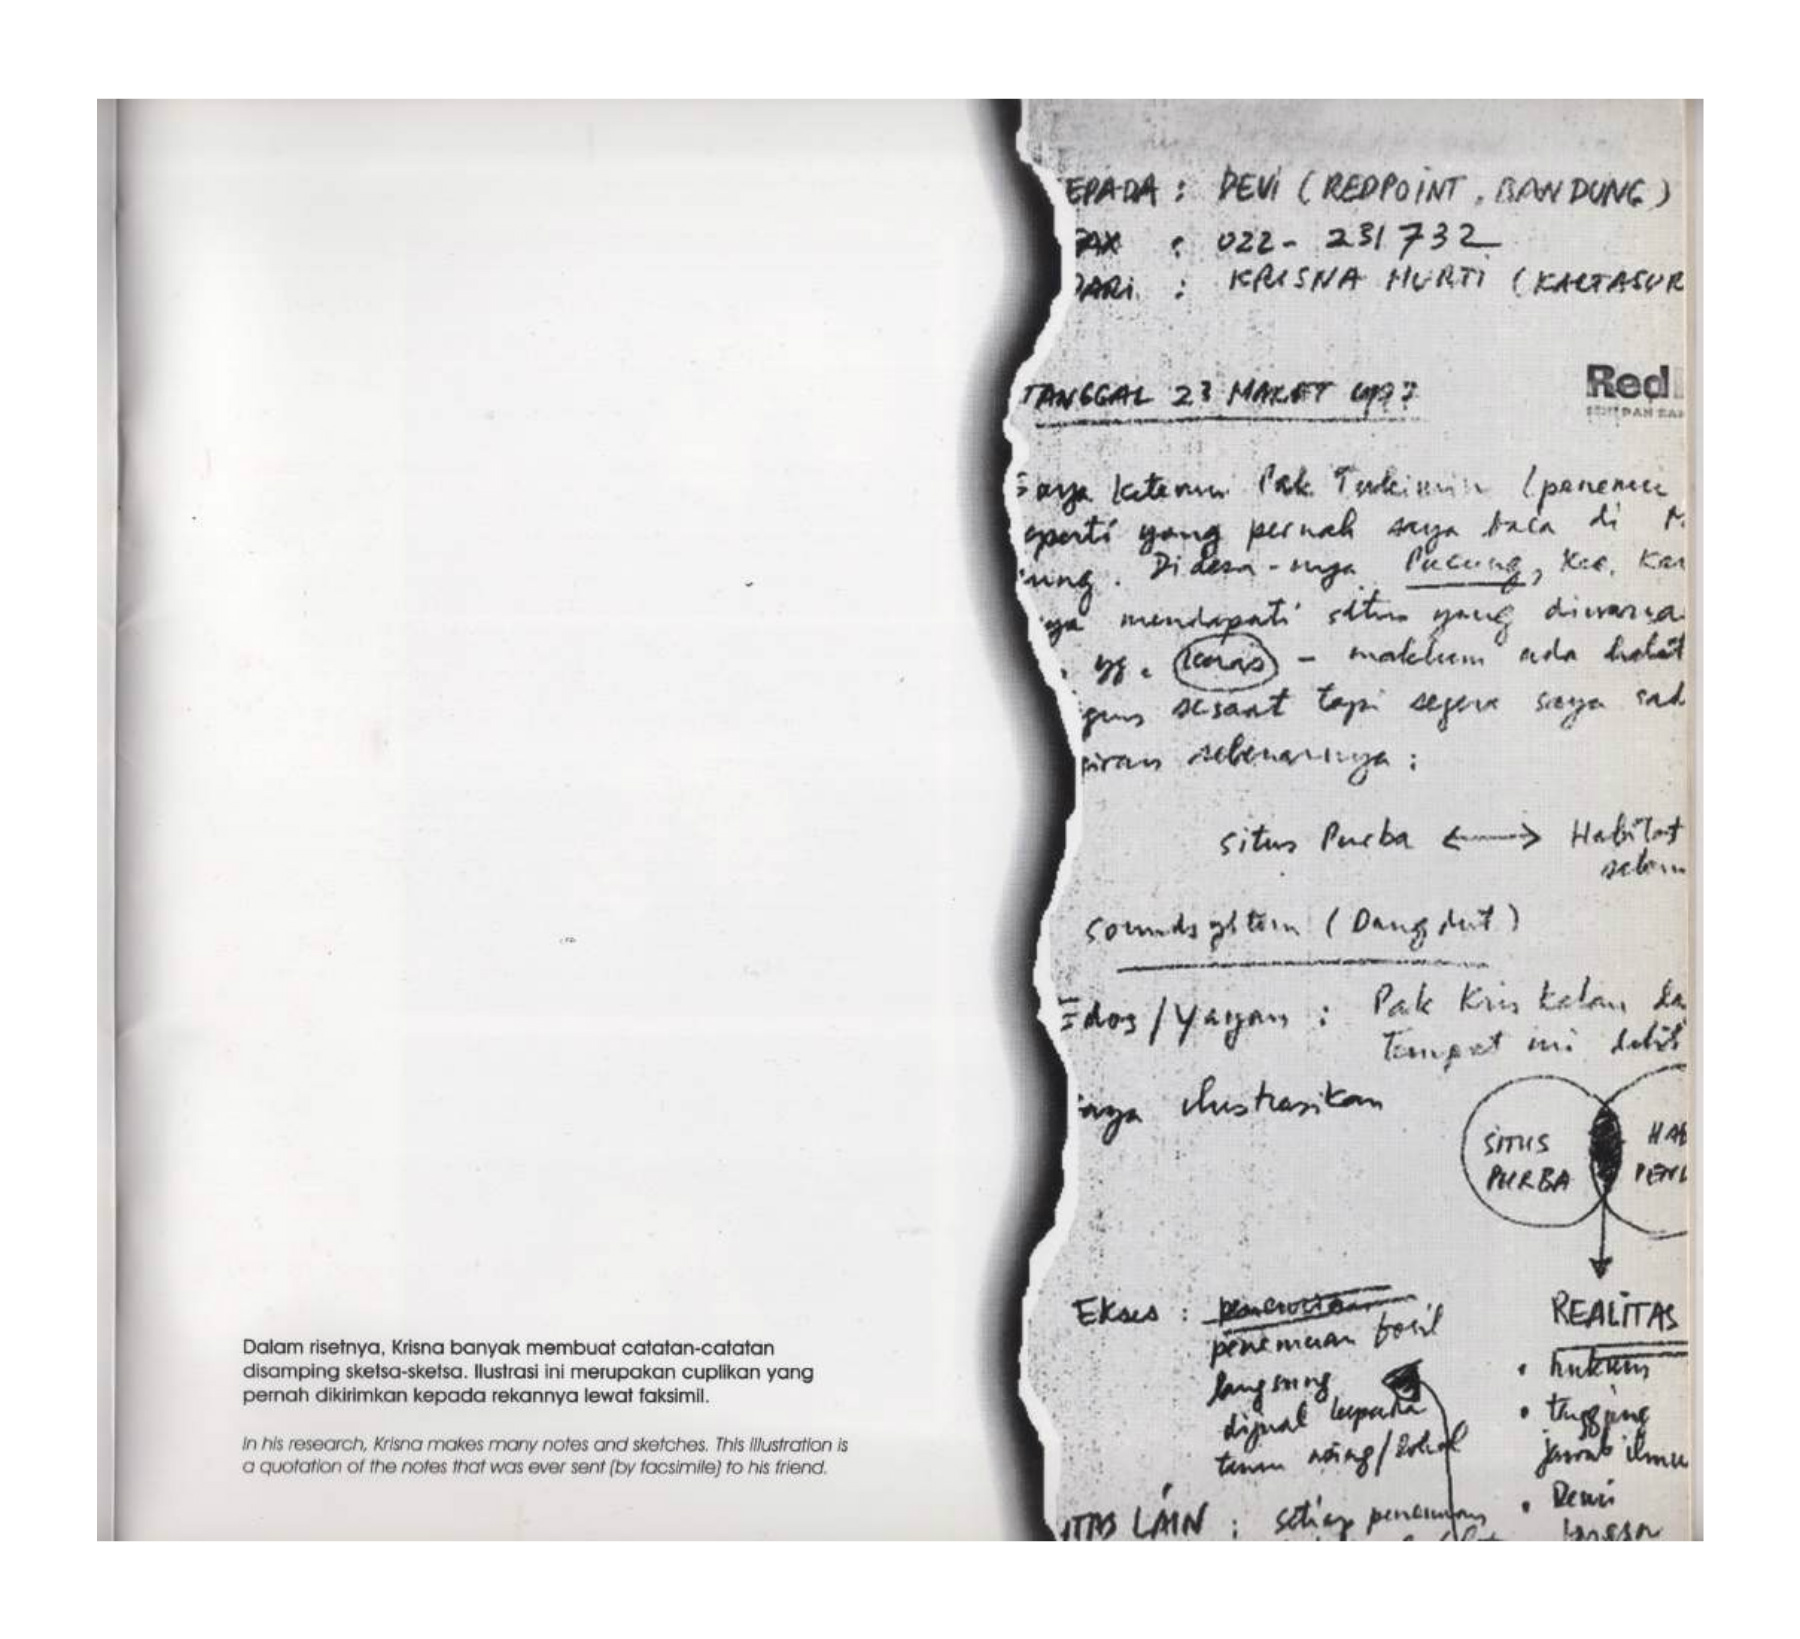 Dalam risetnya, Krisna banyak membuat catatan-catatan
disamping sketsa-sketsa. Ilustrasi ini merupakan cuplikan yang
pernah dikirimkan kepada rekannya lewat faksimil.
In his research, Krisna makes many notes and sketches. This illustration is
a quotation of the notes that was ever sent (by facsimile) to his friend.
EPADA : DEVI (REDPOINT, BANDUNG)
FAX : 022- 231732
DARI : KRISNA MURTI (KARTASUR
TANGGAL 23 MARET 1997
Red
saya ketemu Pak Tukimin (penemu
eperti yang pernah saya baca di M
ung. Di desa-nya Pucung, Kec. Kar
ya mendapati situs yang diwarna
yg. - maklum ada habit
gus sesaat tapi segera saya sad
kiran sebenarnya :
situs Purba <---> Habitat
soundsystem (Dangdut)
Edos/Yayan : Pak Kris kalau da
Tempat ini lebih
saya ilustrasikan
SITUS PURBA
HAB
PEND
Ekses :
penemuan fosil
langsung
dijual kepada
REALITAS
• hukum
• tanggung
jawab ilmu
ITAS LAIN : setiap penemuan